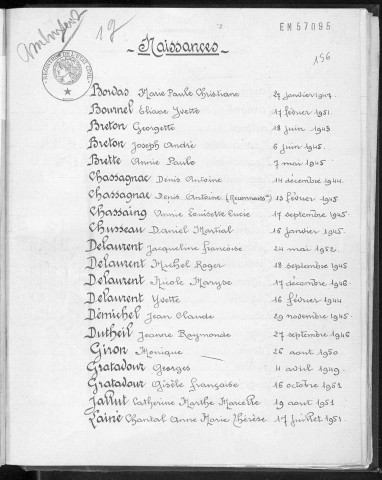 EM57095
19
- Naissances -
196
Bordas Marie Paule Christiane 27 janvier 1947.
Bournel Eliane Yvette 17 février 1951.
Breton Georgette 18 juin 1943
Breton Joseph André 6 juin 1945.
Brette Annie Paule 7 mai 1945
Chassagnac Denis Antoine 14 décembre 1944.
Chassagnac Denis Antoine (Reconnaiss) 13 février 1945
Chassaing Annie Louisette Lucie 17 septembre 1945.
Chusseau Daniel Martial 16 janvier 1945.
Delaurent Jacqueline françoise 24 mai 1952.
Delaurent Michel Roger 18 septembre 1945
Delaurent Nicole Maryse 17 décembre 1946
Delaurent Yvette 16 février 1944
Démichel Jean Claude 29 novembre 1945.
Dutheil Jeanne Raymonde 27 septembre 1946
Giron Monique 26 août 1950
Gratadour Georges 4 avril 1949.
Gratadour Gisèle françoise 16 octobre 1951
Jallut Catherine Marthe Marcelle 19 août 1951
Lainé Chantal Anne Marie Thérèse 17 juillet 1951.